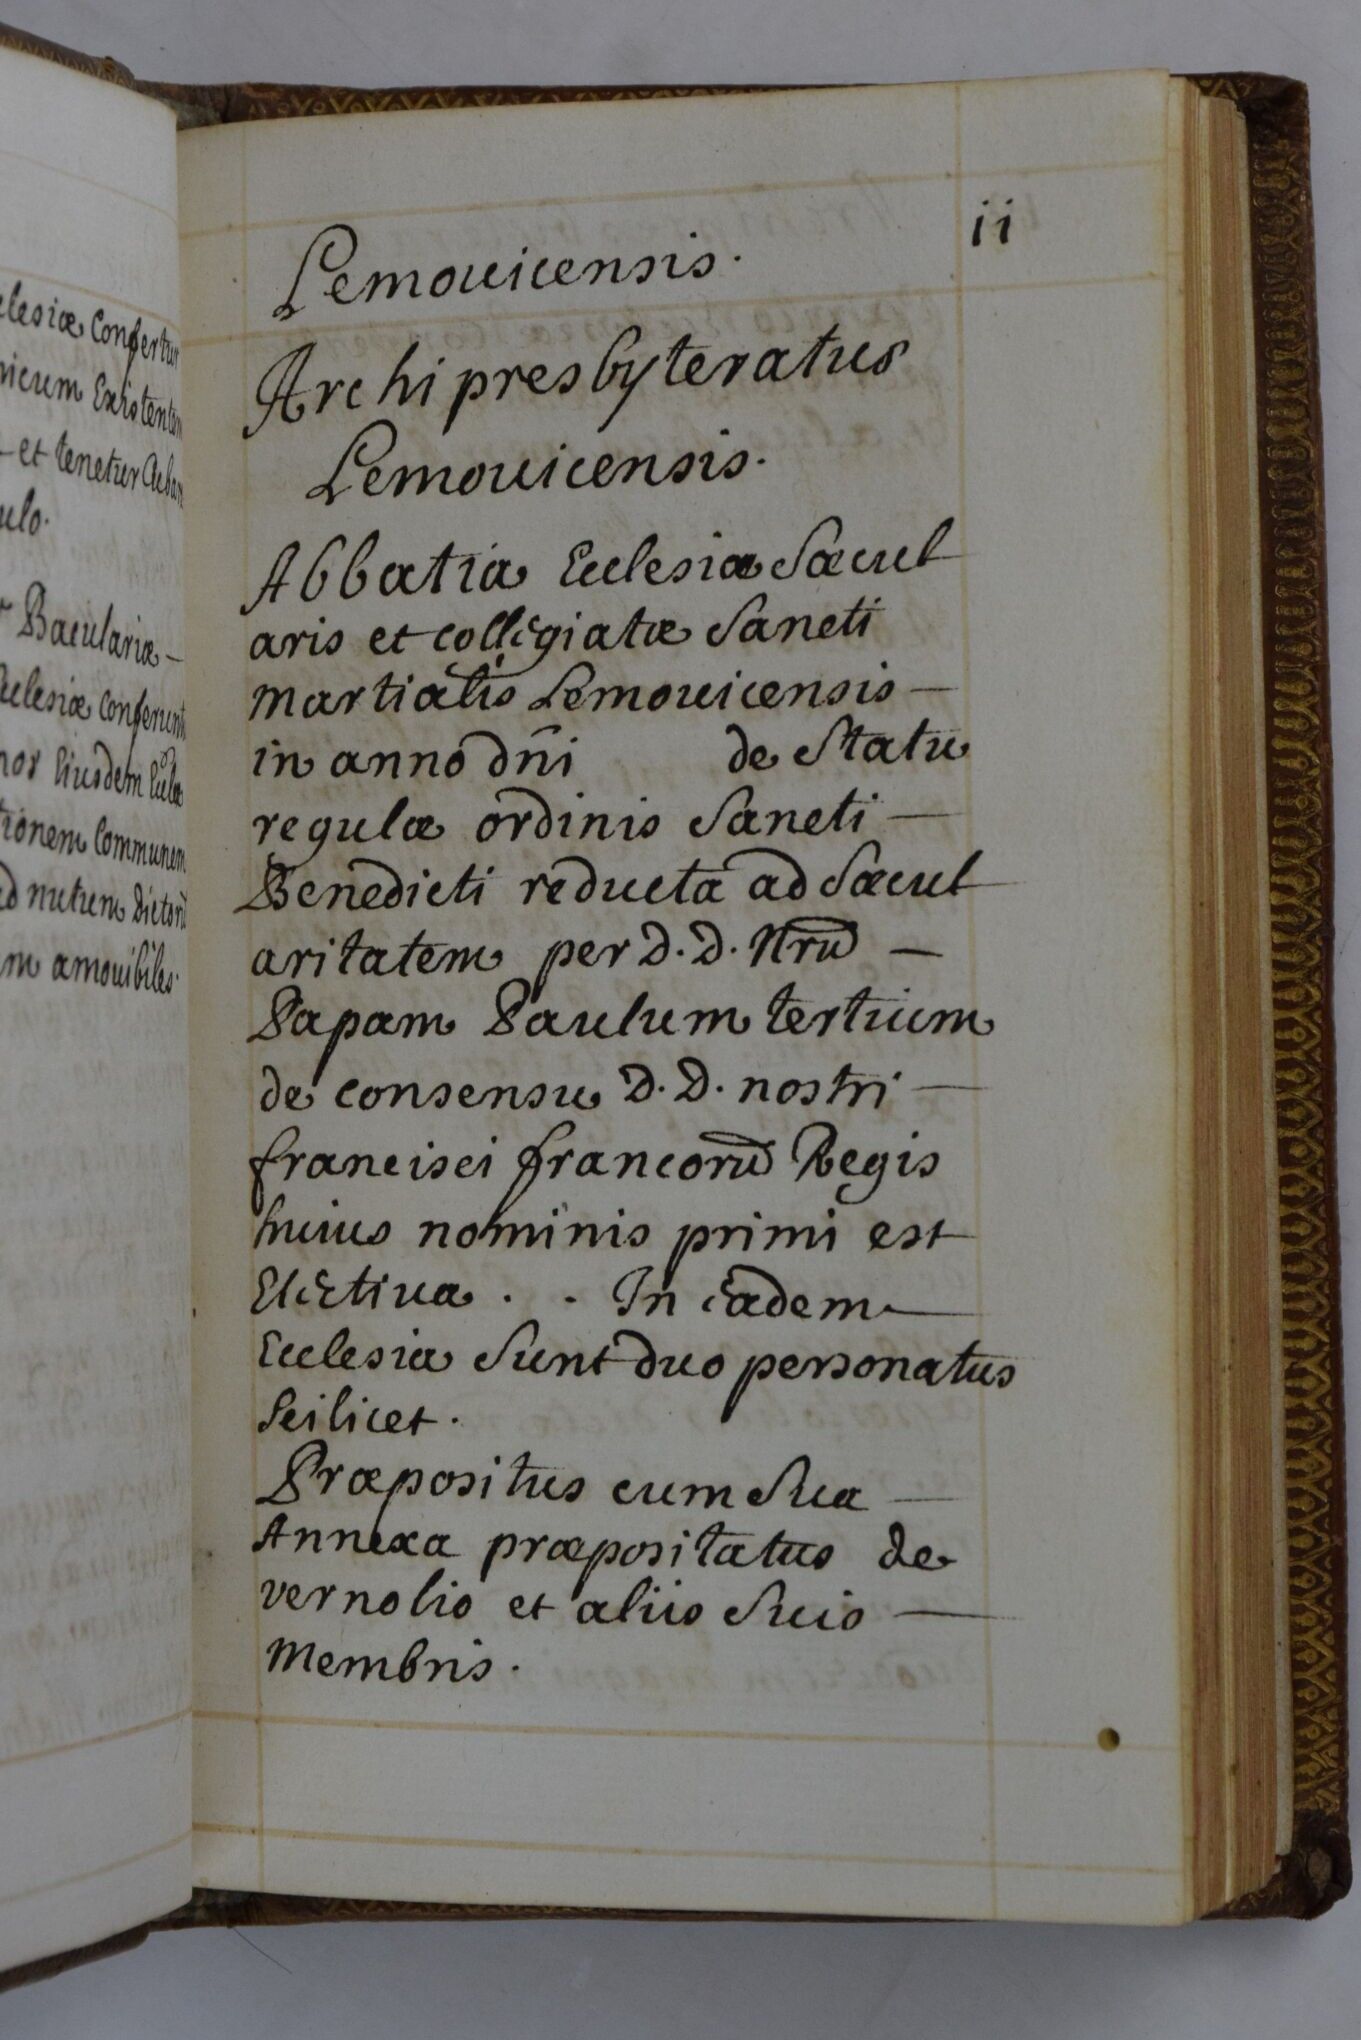 elesiæ Confertur
nicum Existentem
et tenetur
ulo.
Baculariæ
Eclesiæ Conferunt
nos Eiusdem
tionem Communem
ad nutum Dictorũ
m amouibiles.
ii
Lemouicensis.
Archipresbyteratus
Lemouicensis.
Abbatia Eclesiæ Sæcul
aris et collegiatæ Sancti
martialis Lemouicensis —
in anno dñi de Statu
regulæ ordinis Sancti —
Benedicti reducta ad Sæcul
aritatem per D. D. Nrũ —
Papam Paulum tertium
de consensu D. D. nostri —
francisci francorũ Regis
huius nominis primi est
Electiua . . In eadem —
Eclesia Sunt duo personatus
Scilicet.
Præpositus cum Sua —
Annexa præpositatus de
vernolio et aliis Suis —
membris.